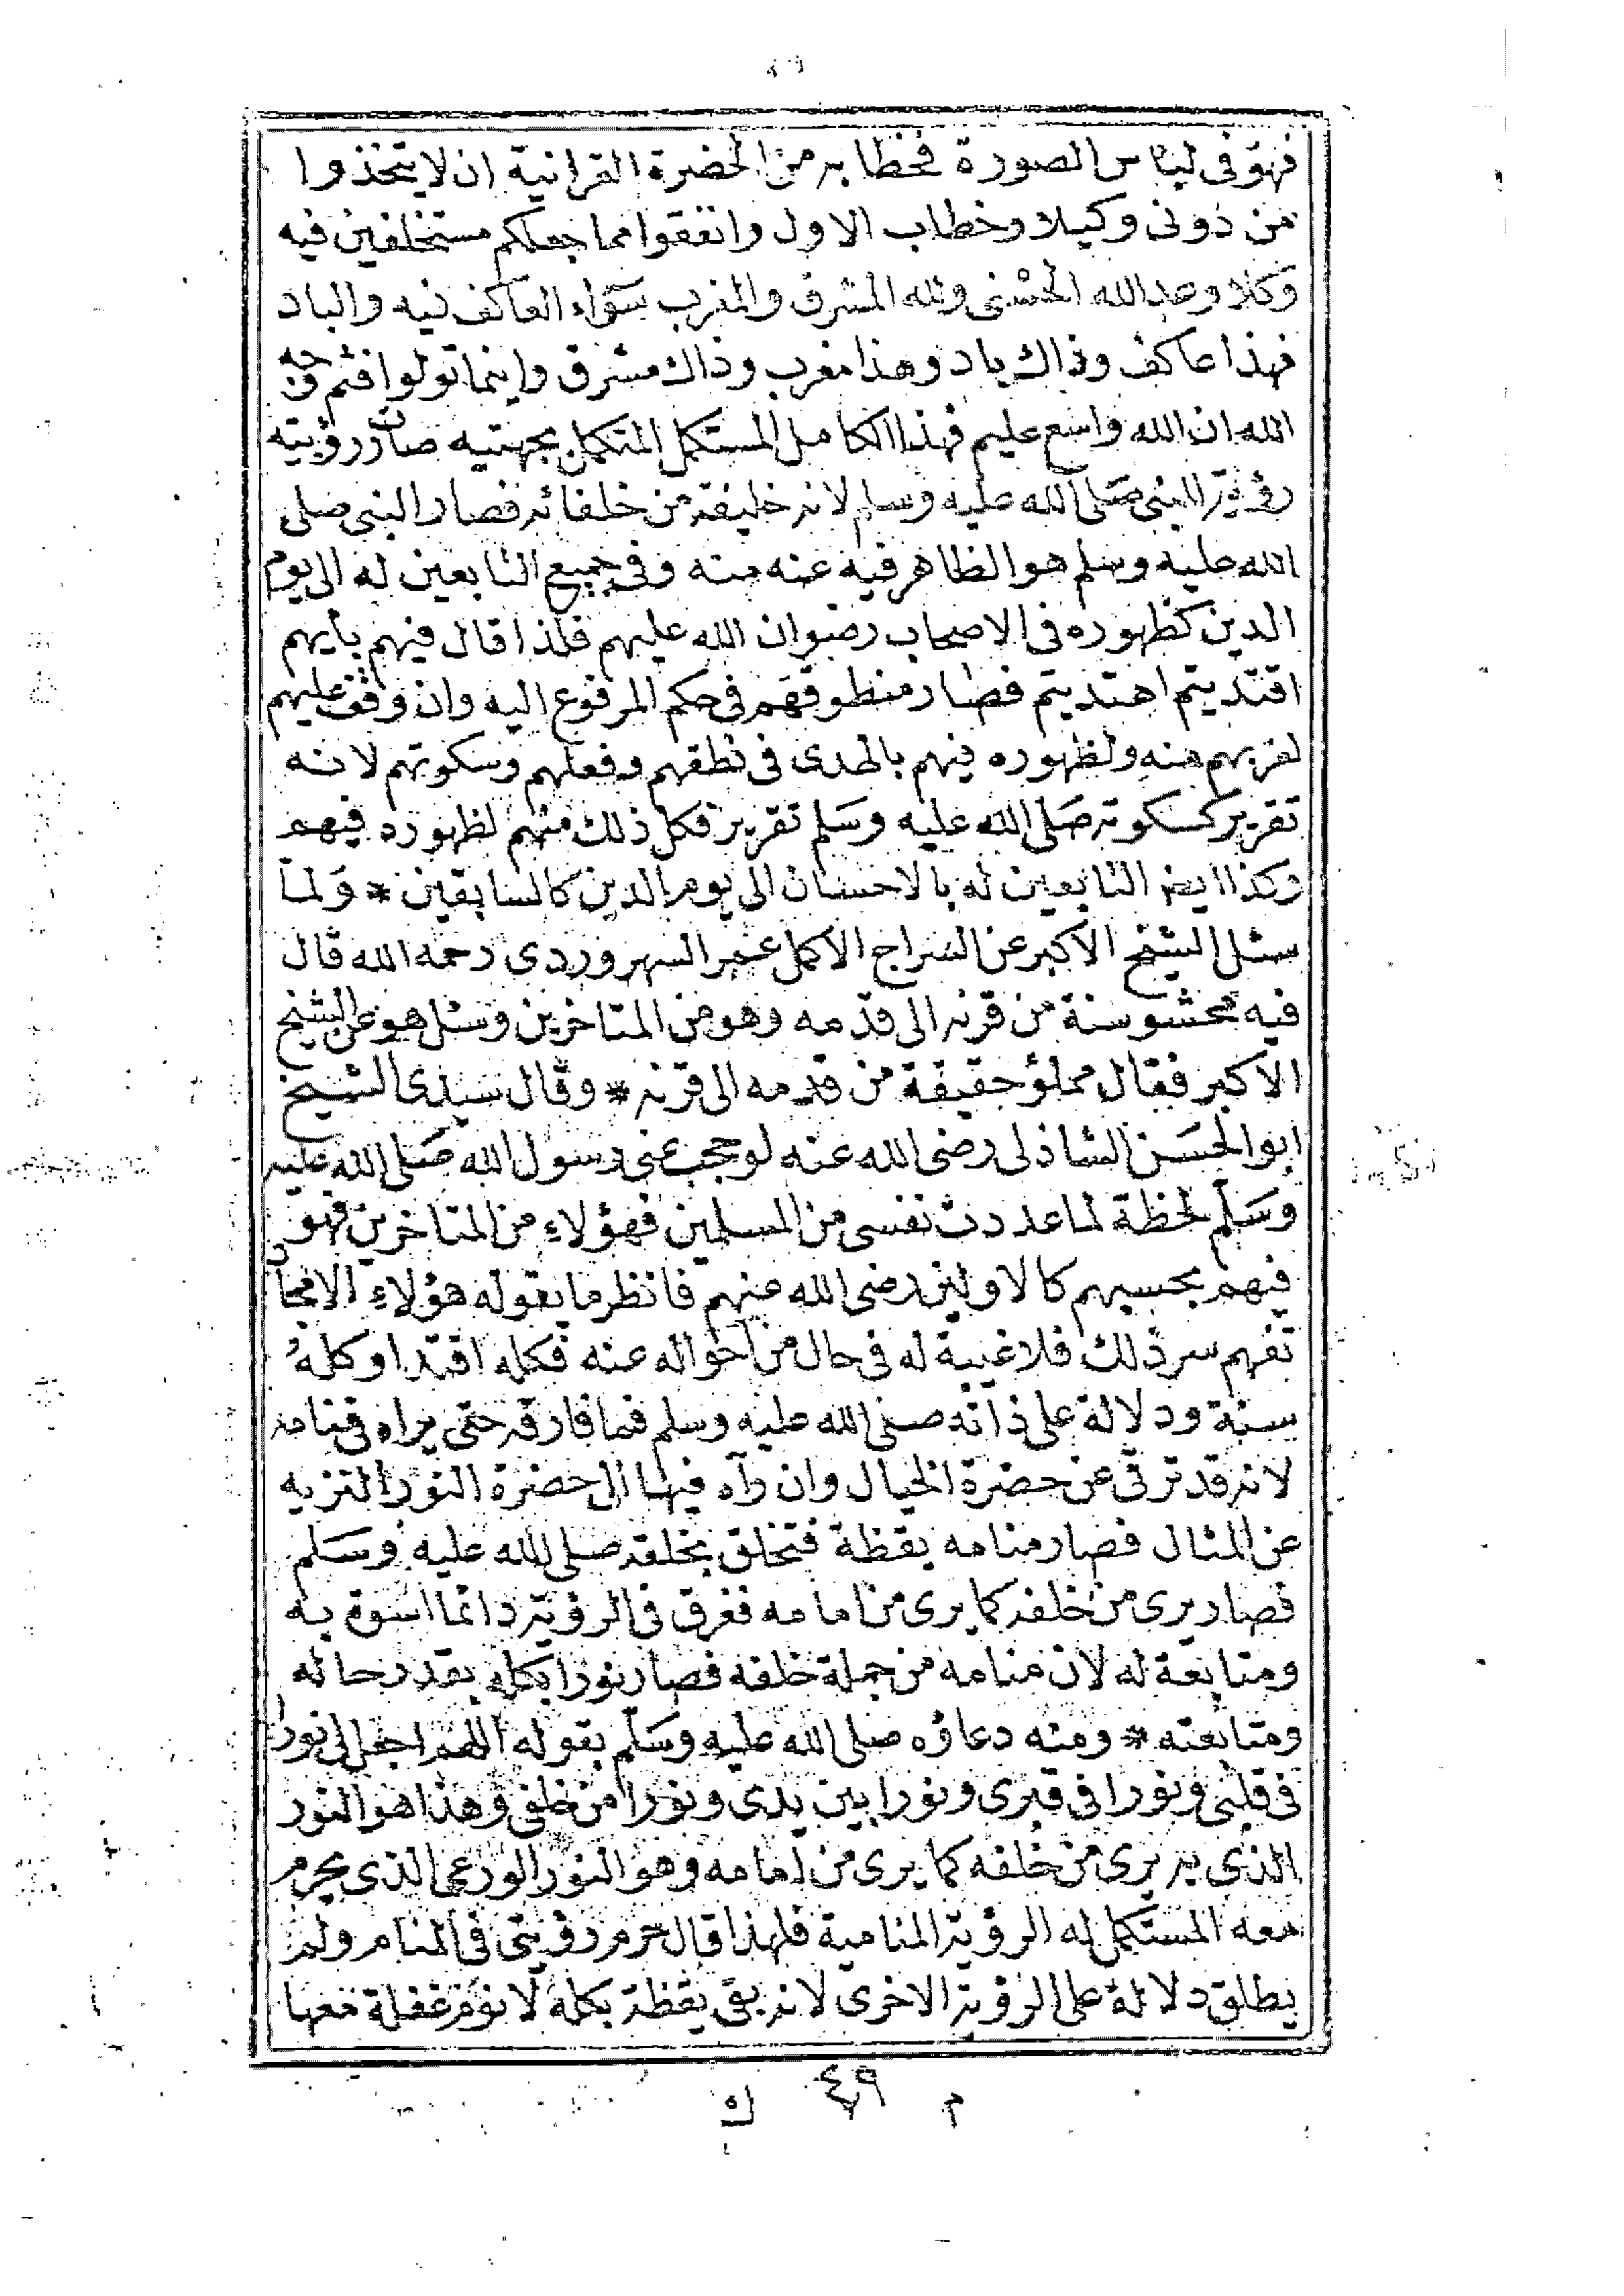 ٤٩
فهو فى لباس الصورة فخطابه من الحضرة القرانية ان لا يتخذوا
من دونى وكيلا وخطاب الاول وانفقوا مما جعلكم مستخلفين فيه
وكلا وعد الله الحسنى ولله المشرق والمغرب سواء العاكف فيه والباد
فهذا عاكف وذاك باد وهذا مغرب وذاك مشرق واينما تولوا فثم وجه
الله ان الله واسع عليم فهذا الكامل المستكمل المتكمل بجهتيه صارت رؤيته
رؤية للنبى صلى الله عليه وسلم لانه خليفة من خلفائه فصار النبى صلى
الله عليه وسلم هو الظاهر فيه عنه منه وفى جميع التابعين له الى يوم
الدين كظهوره فى الاصحاب رضوان الله عليهم فلذا قال فيهم بايهم
اقتديتم اهتديتم فصار منطوقهم فى حكم المرفوع اليه وان وقف عليهم
لقربهم منه ولظهوره فيهم بالهدى فى نطقهم وفعلهم وسكوتهم لانه
تقرير كسكوته صلى الله عليه وسلم تقرير فكل ذلك منهم لظهوره فيهم
وكذا ايض التابعين له بالاحسان الى يوم الدين كالسابقين * ولما
سئل الشيخ الاكبر عن السراج الاكمل عمر السهروردى رحمه الله قال
فيه محشو سنة من قرنه الى قدمه وهو من المتاخرين وسئل هو عن الشيخ
الاكبر فقال مملؤ حقيقة من قدمه الى قرنه * وقال سيدى الشيخ
ابو الحسن الشاذلى رضى الله عنه لو حجب عنى رسول الله صلى الله عليه
وسلم لحظة لما عددت نفسى من المسلمين فهؤلاء من المتاخرين فهو
فيهم بحسبهم كالاولين رضى الله عنهم فانظر ما يقوله هؤلاء الامجاد
تفهم سر ذلك فلا غيبة له فى حال من احواله عنه فكله اقتدا وكله
سنة ودلالة على ذاته صلى الله عليه وسلم فما فارقه حتى يراه فى منامه
لانه قد ترقى عن حضرة الخيال وان رآه فيها الى حضرة النور التنزيه
عن المثال فصار منامه يقظة فتخلق بخلقه صلى الله عليه وسلم
فصار يرى من خلفه كما يرى من امامه فغرق فى الرؤية دائما اسوة به
ومتابعة له لان منامه من جملة خلفه فصار نورا بكله بقدر حاله
ومتابعته * ومنه دعاؤه صلى الله عليه وسلم بقوله اللهم اجعل لى نورا
فى قلبى ونورا فى قبرى ونورا بين يدى ونورا من خلفى وهذا هو النور
الذى به يرى من خلفه كما يرى من امامه وهو النور الورعى الذى يحرم
معه المستكمل له الرؤية المنامية فلهذا قال حرم رؤيتى فى المنام ولم
يطلق دلالة على الرؤية الاخرى لانه بقى يقظة بكله لا نوم غفلة معها
م ٤٩ ك